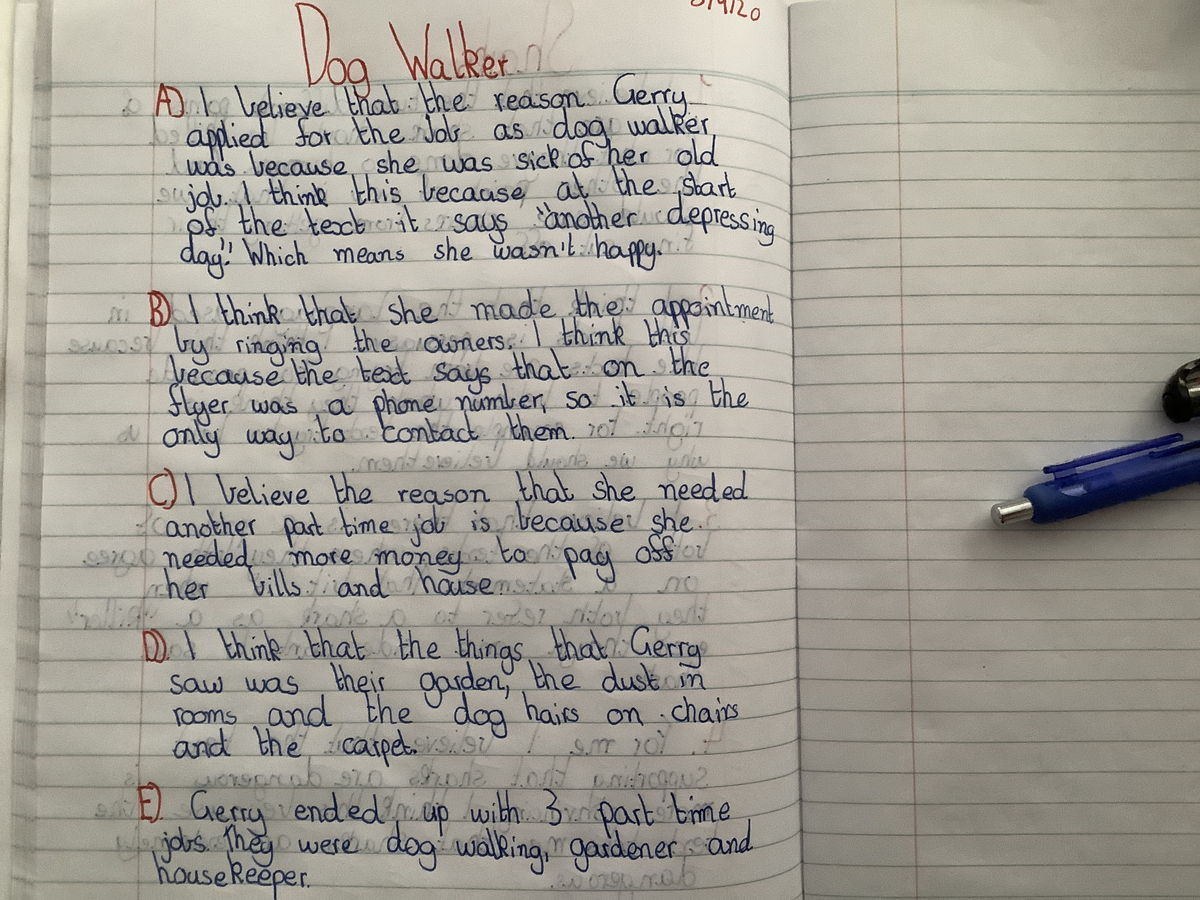 Dog Walker
A) I believe that the reason Gerry
applied for the Job as dog walker
was because she was sick of her old
job. I think this because at the start
of the text it says "another depressing
day". Which means she wasn't happy.
B) I think that she made the appointment
by ringing the owners. I think this
because the text says that on the
flyer was a phone number, so it is the
only way to contact them.
C) I believe the reason that she needed
another part time job is because she
needed more money to pay off
her bills and house
D) I think that the things that Gerry
saw was their garden, the dust in
rooms and the dog hairs on chairs
and the carpet.
E) Gerry ended up with 3 part time
jobs. They were dog walking, gardener and
housekeeper.